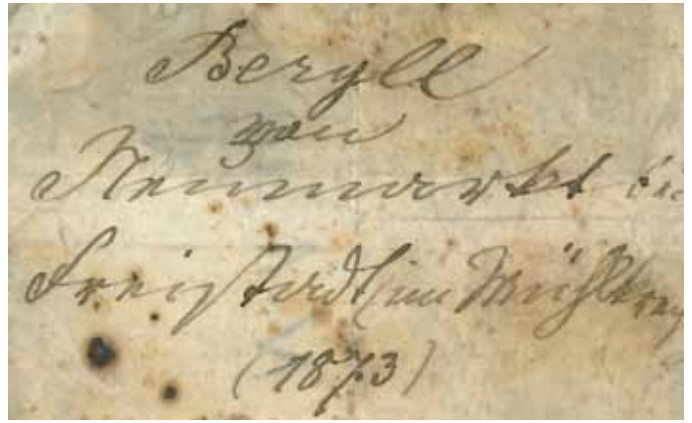 Beryll
von
Neumarkt bei
Freistadt (im Mühlkrei
(1873)